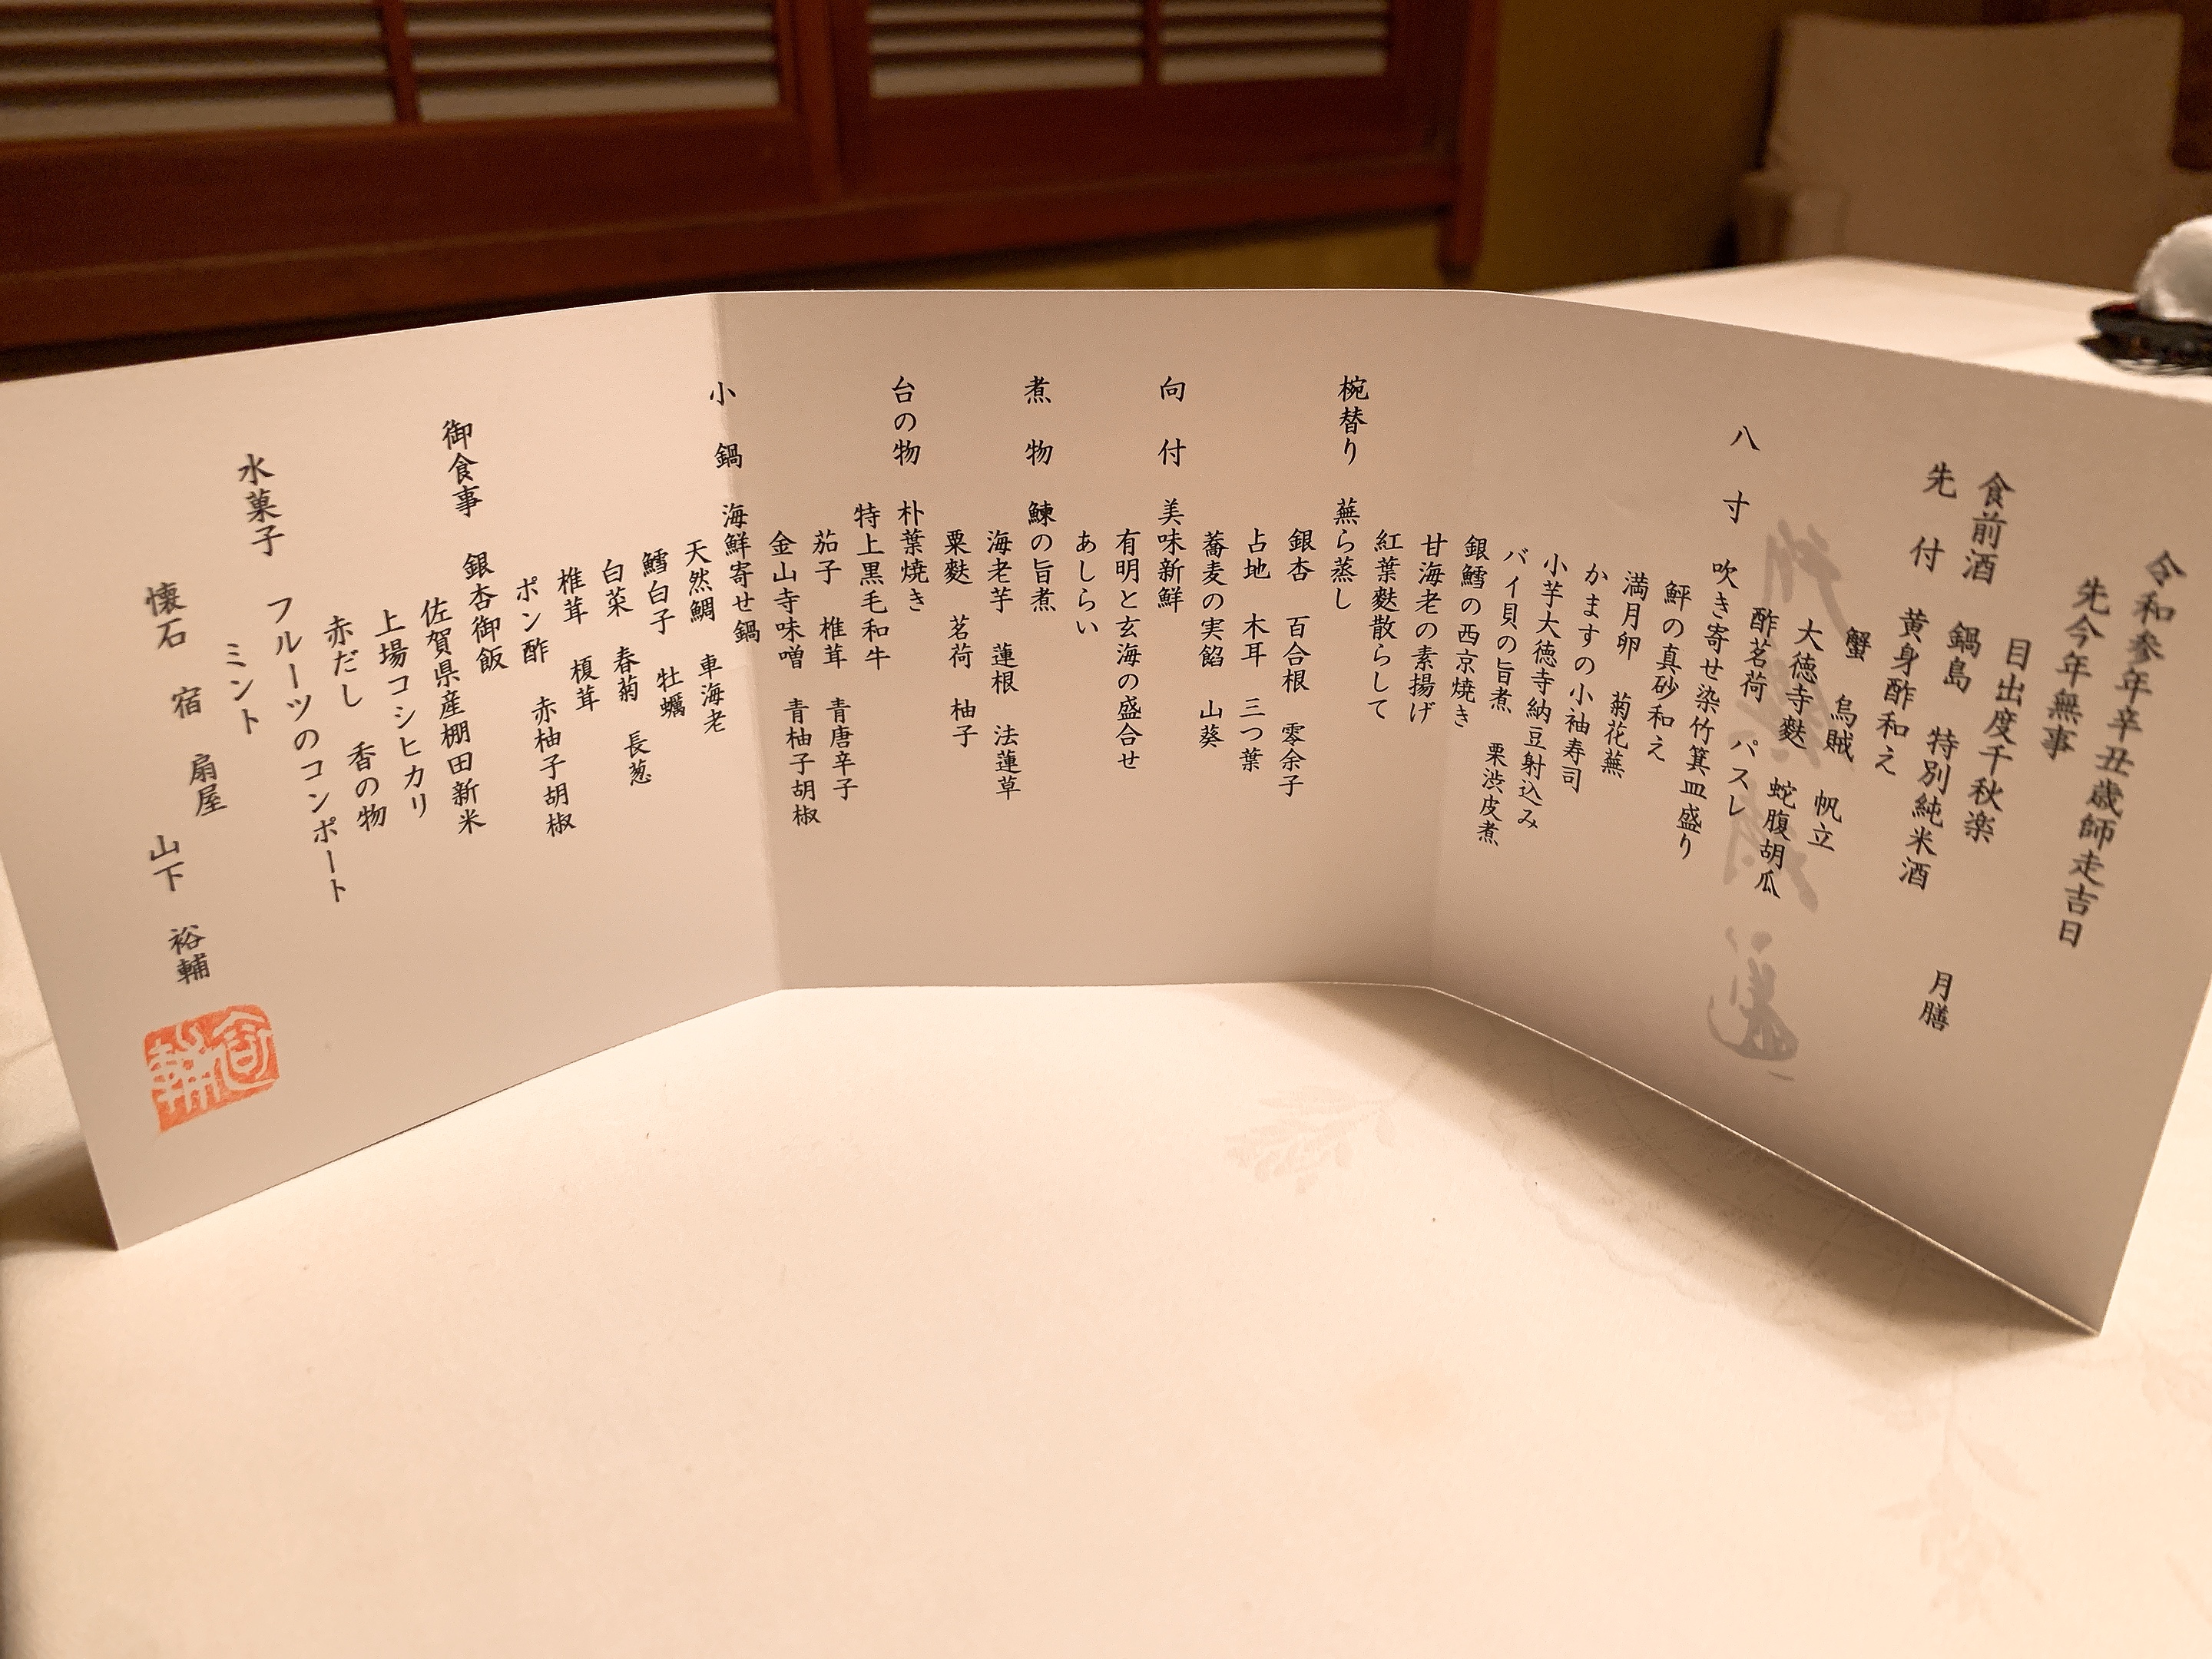 令和参年辛丑歳師走吉日
先今年無事
目出度千秋楽
月膳
食前酒 鍋島 特別純米酒
先付 黄身酢和え
蟹 烏賊 帆立
大徳寺麩 蛇腹胡瓜
酢茗荷 パスレ
八寸 吹き寄せ染竹箕皿盛り
鮃の真砂和え
満月卵 菊花蕪
かますの小袖寿司
小芋大徳寺納豆射込み
バイ貝の旨煮 栗渋皮煮
銀鱈の西京焼き
甘海老の素揚げ
紅葉麩散らして
椀替り 蕪ら蒸し
銀杏 百合根 零余子
占地 木耳 三つ葉
蕎麦の実餡 山葵
向付 美味新鮮
有明と玄海の盛合せ
あしらい
煮物 鰊の旨煮
海老芋 蓮根 法蓮草
粟麩 茗荷 柚子
台の物 朴葉焼き
特上黒毛和牛
茄子 椎茸 青唐辛子
金山寺味噌 青柚子胡椒
小鍋 海鮮寄せ鍋
天然鯛 車海老
鱈白子 牡蠣
白菜 春菊 長葱
椎茸 榎茸
ポン酢 赤柚子胡椒
御食事 銀杏御飯
佐賀県産棚田新米
上場コシヒカリ
赤だし 香の物
水菓子 フルーツのコンポート
ミント
懐石 宿 扇屋 山下 裕輔